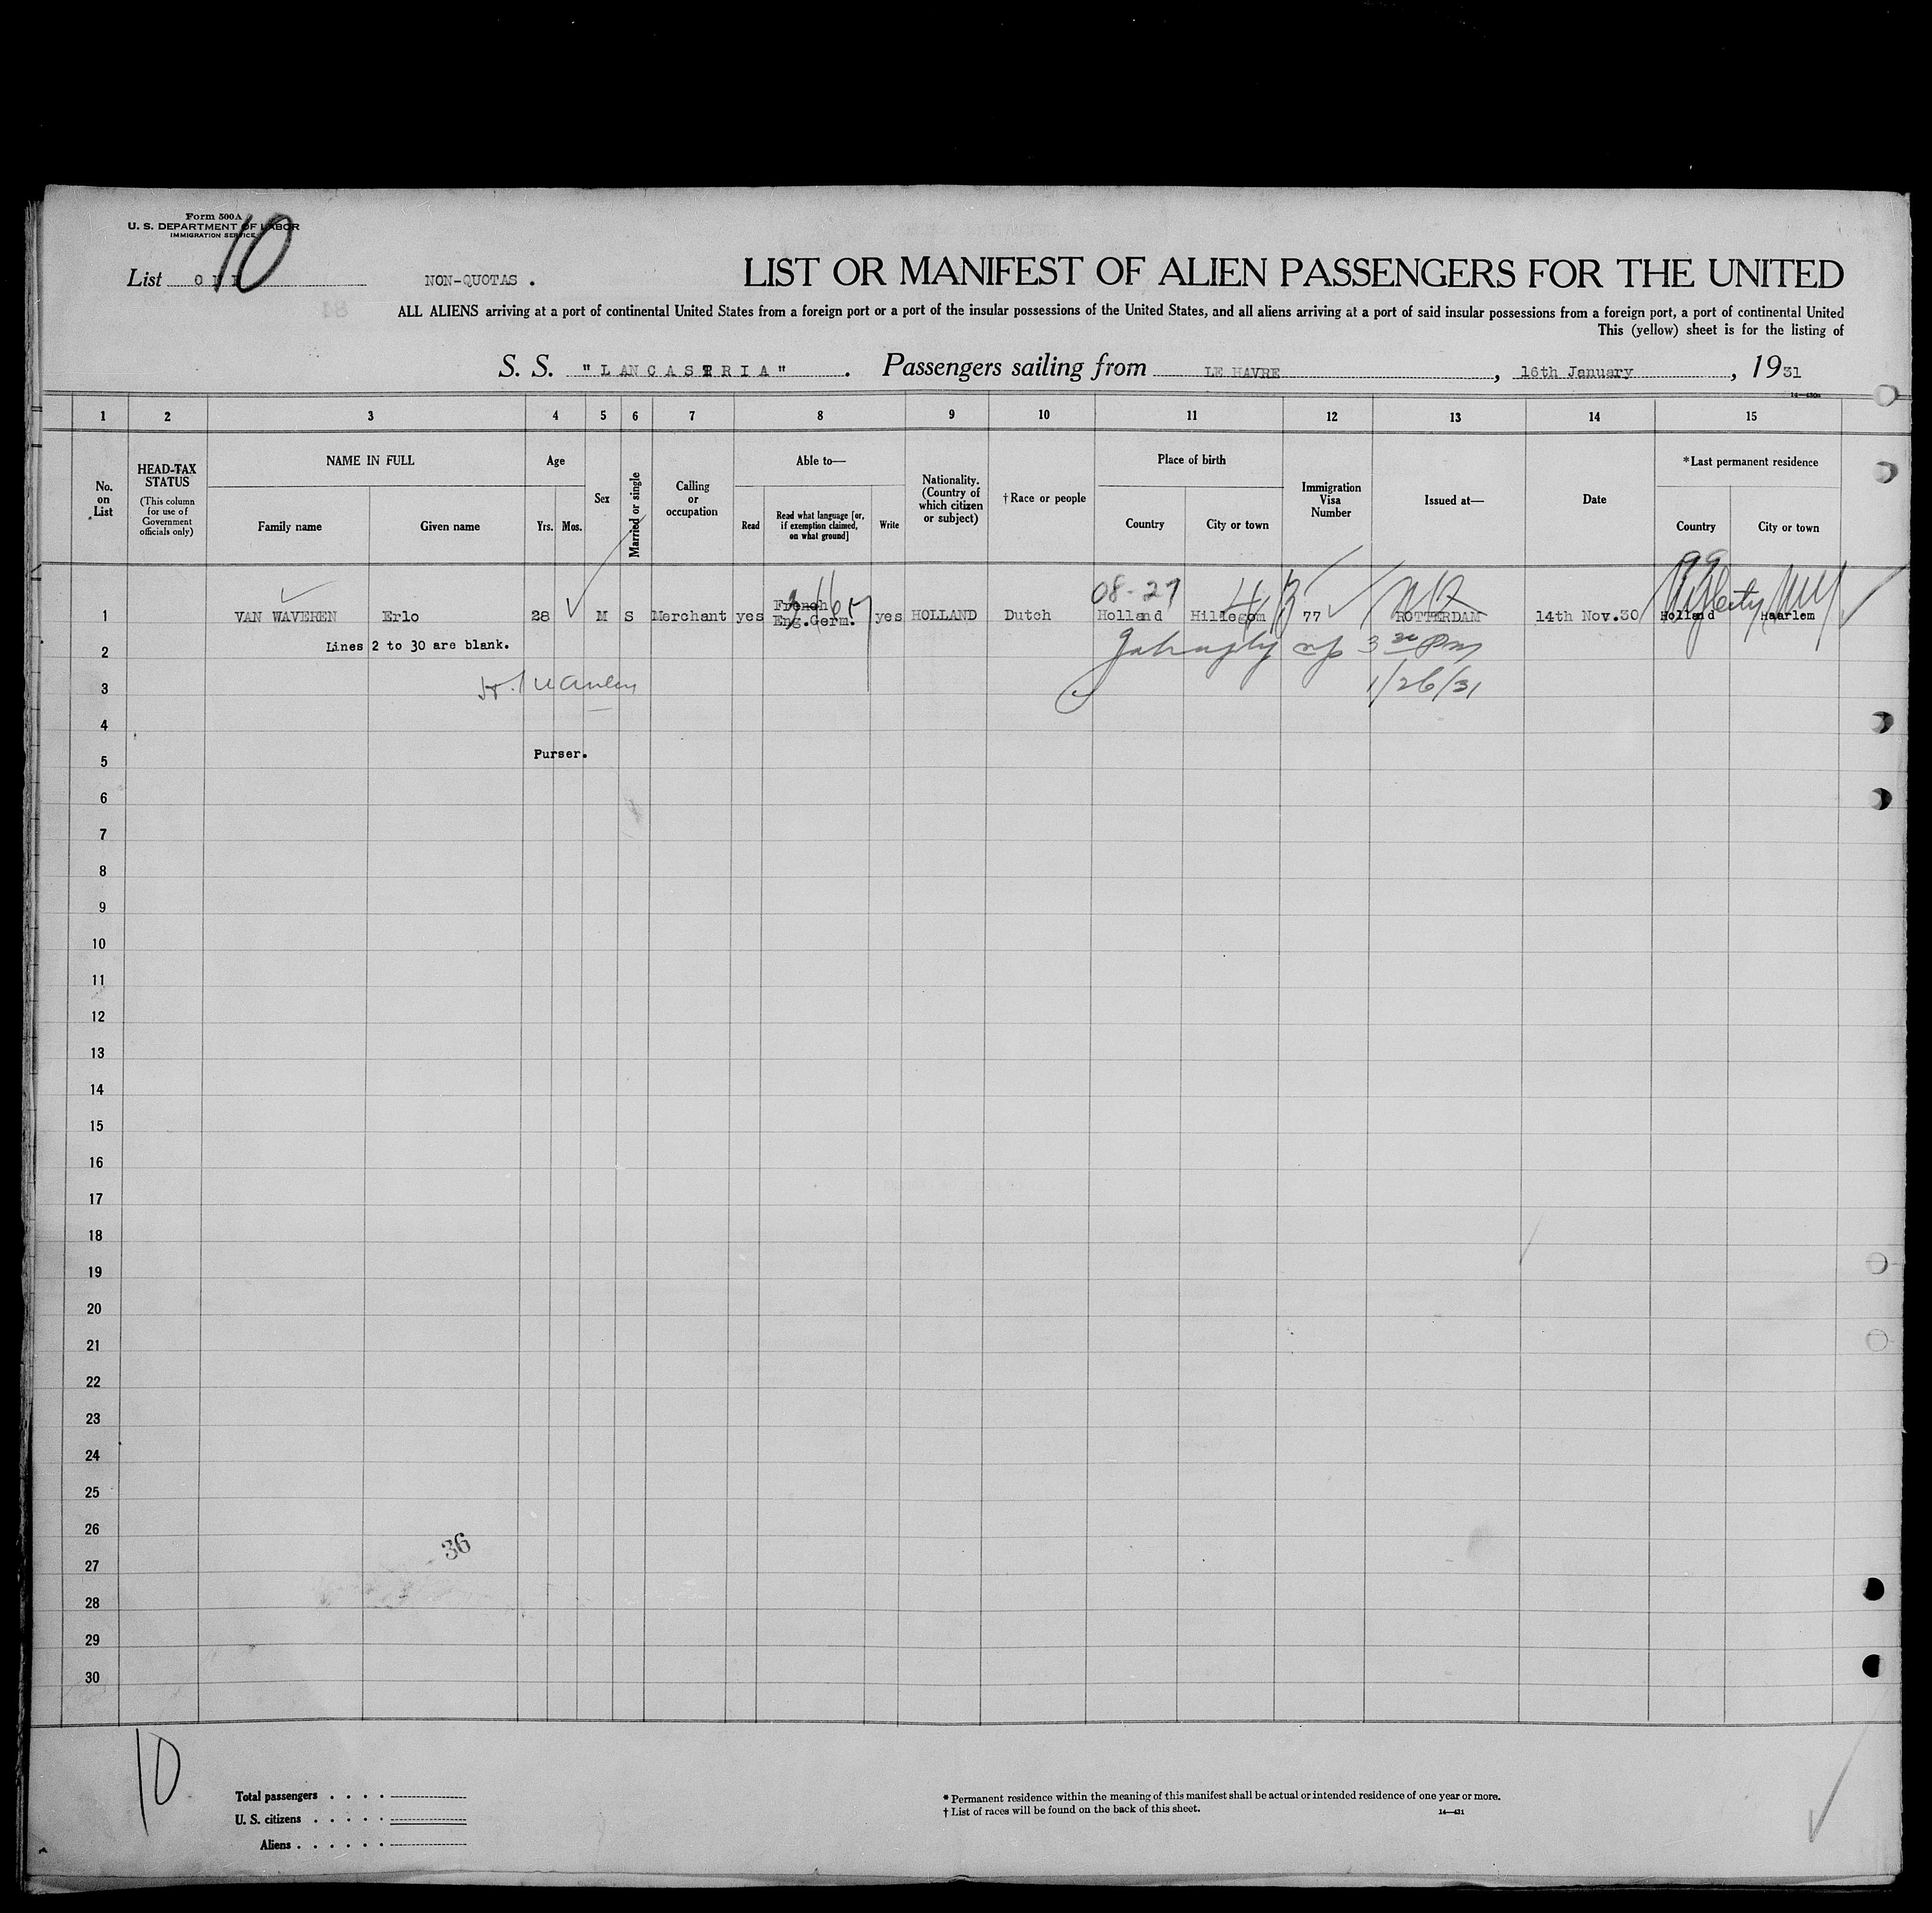 Form 500A
U. S. DEPARTMENT OF LABOR
IMMIGRATION SERVICE
10
List ONE NON-QUOTAS .
LIST OR MANIFEST OF ALIEN PASSENGERS FOR THE UNITED
ALL ALIENS arriving at a port of continental United States from a foreign port or a port of the insular possessions of the United States, and all aliens arriving at a port of said insular possessions from a foreign port, a port of continental United
This (yellow) sheet is for the listing of
S. S. "LANCASTRIA" . Passengers sailing from LE HAVRE , 16th January , 1931
14—430a
1 2 3 4 5 6 7 8 9 10 11 12 13 14 15
No. on List
HEAD-TAX STATUS
(This column for use of Government officials only)
NAME IN FULL
Family name Given name
Age
Yrs. Mos.
Sex
Married or single
Calling or occupation
Able to—
Read Read what language [or, if exemption claimed, on what ground] Write
Nationality. (Country of which citizen or subject)
†Race or people
Place of birth
Country City or town
Immigration Visa Number
Issued at—
Date
*Last permanent residence
Country City or town
08-27
1 VAN WAVEREN Erlo 28 M S Merchant yes French Eng.Germ. yes HOLLAND Dutch Holland Hillegom 77 ROTTERDAM 14th Nov.30 Holland Haarlem
Lines 2 to 30 are blank.
2
3 30 Pm
3
1/26/31
4
Purser.
5
6
7
8
9
10
11
12
13
14
15
16
17
18
19
20
21
22
23
24
25
26
36
27
28
29
30
10
Total passengers . . . .
U. S. citizens . . . . .
Aliens . . . . . .
* Permanent residence within the meaning of this manifest shall be actual or intended residence of one year or more.
† List of races will be found on the back of this sheet.
14—431